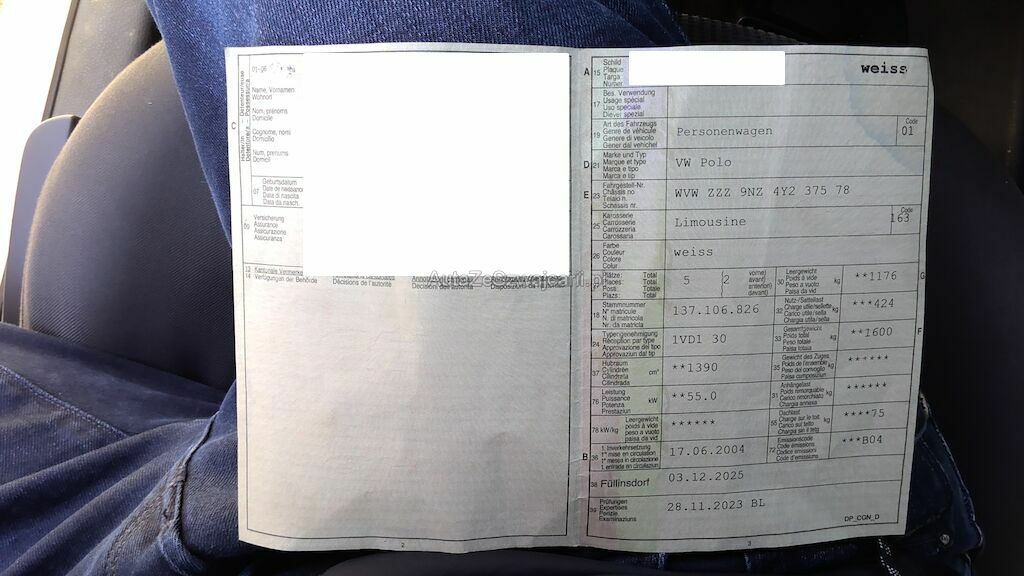 C
Halter/in – Détenteur/trice
Detentore/a – Possessur/a
01-06
Name, Vornamen
Wohnort
Nom, prénoms
Domicile
Cognome, nomi
Domicilio
Num, prenums
Domicil
07
Geburtsdatum
Date de naissance
Data di nascita
Data da nasch.
09
Versicherung
Assurance
Assicurazione
Assicuranza
13 Kantonale Vermerke
14 Verfügungen der Behörde
Décisions de l'autorité
Decisioni dell'autorità
AutaZeSzwajcarii.pl
2
A 15
Schild
Plaque
Targa
Numer
weiss
17
Bes. Verwendung
Usage spécial
Uso speciale
Diever spezial
19
Art des Fahrzeugs
Genre de véhicule
Genere di veicolo
Gener dal vehichel
Personenwagen
Code
01
D 21
Marke und Typ
Marque et type
Marca e tipo
Marca e tip
VW Polo
E 23
Fahrgestell-Nr.
Châssis no
Telaio n.
Schassis nr.
WVW ZZZ 9NZ 4Y2 375 78
25
Karosserie
Carrosserie
Carrozzeria
Carossaria
Limousine
Code
163
26
Farbe
Couleur
Colore
Colur
weiss
27
Plätze: Total
Places: Total
Posti: Totale
Plazs: Total
5
2
vorne)
avant)
anteriori)
davant)
30
Leergewicht
Poids à vide
Peso a vuoto
Paisa da vid
kg
**1176
G
18
Stammnummer
N° matricule
N. di matricola
Nr. da matricla
137.106.826
32
Nutz-/Sattellast
Charge utile/sellette
Carico utile/sella
Chargia utila/sella
kg
***424
24
Typengenehmigung
Réception par type
Approvazione del tipo
Approvaziun dal tip
1VD1 30
33
Gesamtgewicht
Poids total
Peso totale
Paisa totala
kg
**1600
F
37
Hubraum
Cylindrée
Cilindrata
Cilindrada
cm³
**1390
35
Gewicht des Zuges
Poids de l'ensemble
Peso del convoglio
Paisa cumposiziun
kg
******
76
Leistung
Puissance
Potenza
Prestaziun
kW
**55.0
31
Anhängelast
Poids remorquable
Carico rimorchiato
Chargia annexa
kg
******
78 kW/kg
Leergewicht
poids à vide
peso a vuoto
paisa da vid
******
55
Dachlast
Charge sur le toit
Carico sul tetto
Chargia sin il tetg
kg
****75
B 36
1. Inverkehrsetzung
1re mise en circulation
1a messa in circolazione
1. entrada en circulaziun
17.06.2004
72
Emissionscode
Code émissions
Codice emissioni
Code d'emissiuns
***B04
38 Füllinsdorf
03.12.2025
39
Prüfungen
Expertises
Perizie
Examinaziuns
28.11.2023 BL
DP_CGN_D
3